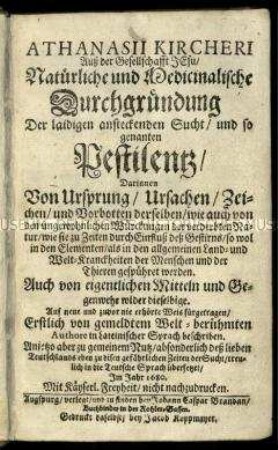 ATHANASII KIRCHERI
Auß der Gesellschafft JEsu/
Natürliche und Medicinalische
Durchgründung
Der laidigen ansteckenden Sucht/ und so
genanten
Pestilentz/
Darinnen
Von Ursprung/ Ursachen/ Zei-
chen/ und Vorbotten derselben/ wie auch von
den ungewohnlichen Würckungen der verderbten Na-
tur/ wie sie zu Zeiten durch Einfluß deß Gestirns/ so wol
in den Elementen/ als in den allgemeinen Land- und
Welt-Kranckheiten der Menschen und der
Thieren gespühret werden.
Auch von eigentlichen Mitteln und Ge-
genwehr wider dieselbige.
Auf neue und zuvor nie erhörte Weis fürgetragen/
Erstlich von gemeldtem Welt-berühmten
Authore in Lateinischer Sprach beschriben.
Anjetzo aber zu gemeinem Nutz/ absonderlich deß lieben
Teutschlands eben zu disen gefährlichen Zeiten der Sucht/ treu-
lich in die Teutsche Sprach übersetzet/
Im Jahr 1680.
Mit Käyserl. Freyheit/ nicht nachzudrucken.
Augspurg/ verlegt/ und zu finden bey Johann Caspar Brandan/
Buchbinder in der Kohler-Gassen.
Gedruckt daselbst/ bey Jacob Koppmayer.